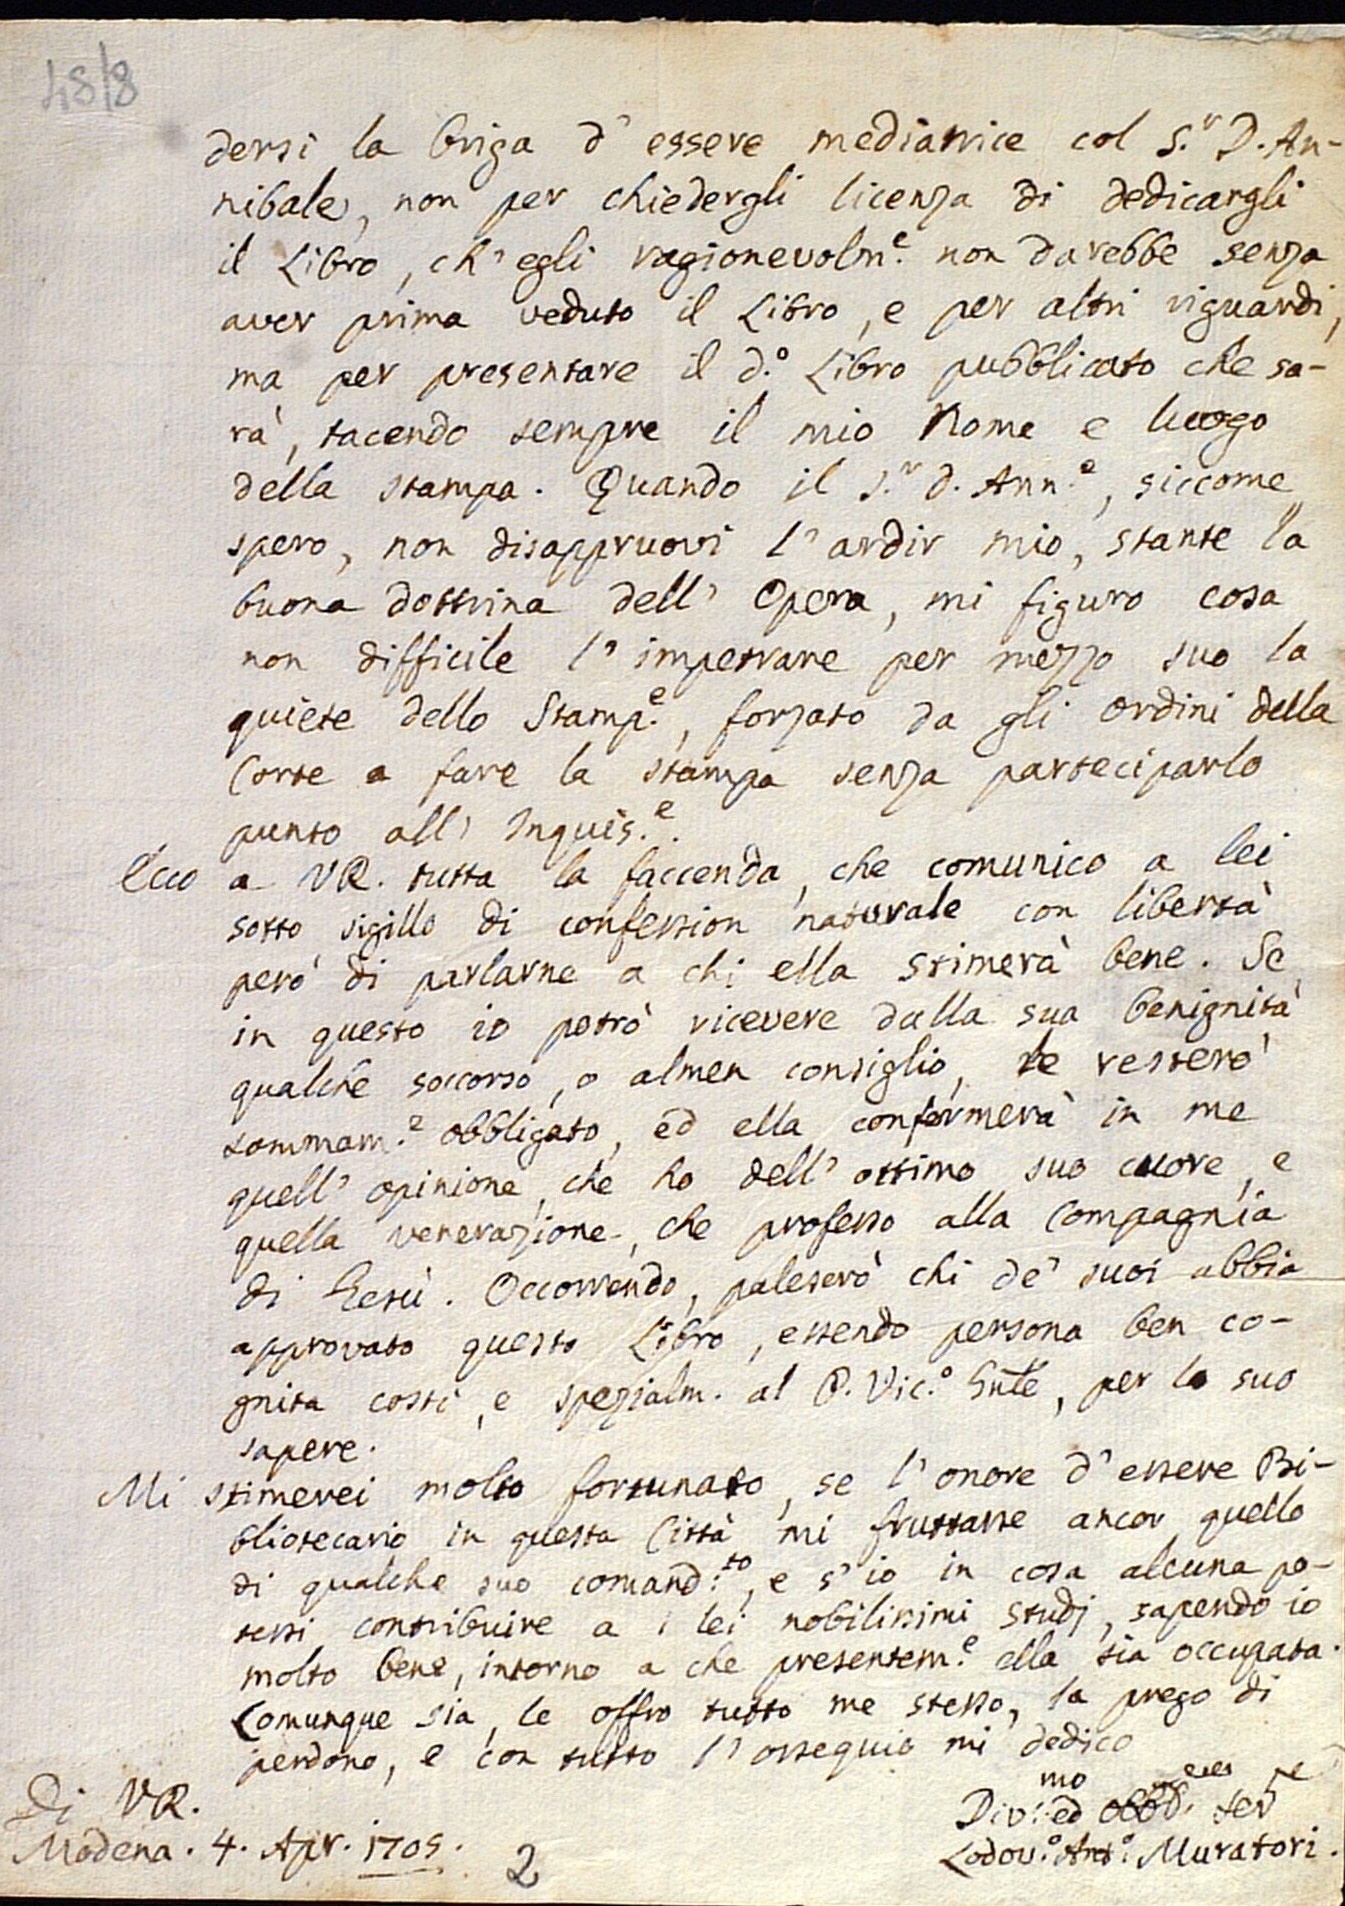 48/8
dersi la briga d'essere mediatrice col S.r D. An-
nibale, non per chiedergli licenza di dedicargli
il Libro, ch'egli ragionevolm.e non darebbe senza
aver prima veduto il Libro, e per altri riguardi,
ma per presentare il d.o Libro pubblicato che sa-
rà, tacendo sempre il mio Nome e luogo
della stampa. Quando il S.r D. Ann.e, siccome
spero, non disappruovi l'ardir mio, stante la
buona dottrina dell'Opera, mi figuro cosa
non difficile l'impetrare per mezzo suo la
quiete dello Stamp.e, forzato da gli ordini della
Corte a fare la stampa senza parteciparlo
punto all'Inquis.e.
Ecco a VR. tutta la faccenda, che comunico a lei
sotto sigillo di confession naturale con libertà
però di parlarne a chi ella stimerà bene. Se
in questo io potrò ricevere dalla sua benignità
qualche soccorso, o almen consiglio, le resterò
sommam.e obbligato, ed ella confermerà in me
quell'opinione, che ho dell'ottimo suo cuore, e
quella venerazione, che professo alla Compagnia
di Gesù. Occorrendo, paleserò chi de' suoi abbia
approvato questo Libro, essendo persona ben co-
gnita costì, e spezialm. al P. Vic.o Gnle, per lo suo
sapere.
Mi stimerei molto fortunato, se l'onore d'essere Bi-
bliotecario in questa Città mi fruttasse ancor quello
di qualche suo comand.to, e s'io in cosa alcuna po-
tessi contribuire a i lei nobilissimi studj, sapendo io
molto bene, intorno a che presentem.e ella sia occupata.
Comunque sia, le offro tutto me stesso, la prego di
perdono, e con tutto l'ossequio mi dedico
Di VR.
Div.mo ed obb. ser.e
Modena. 4. Apr. 1705.
Lodov.o Ant.o Muratori.
2